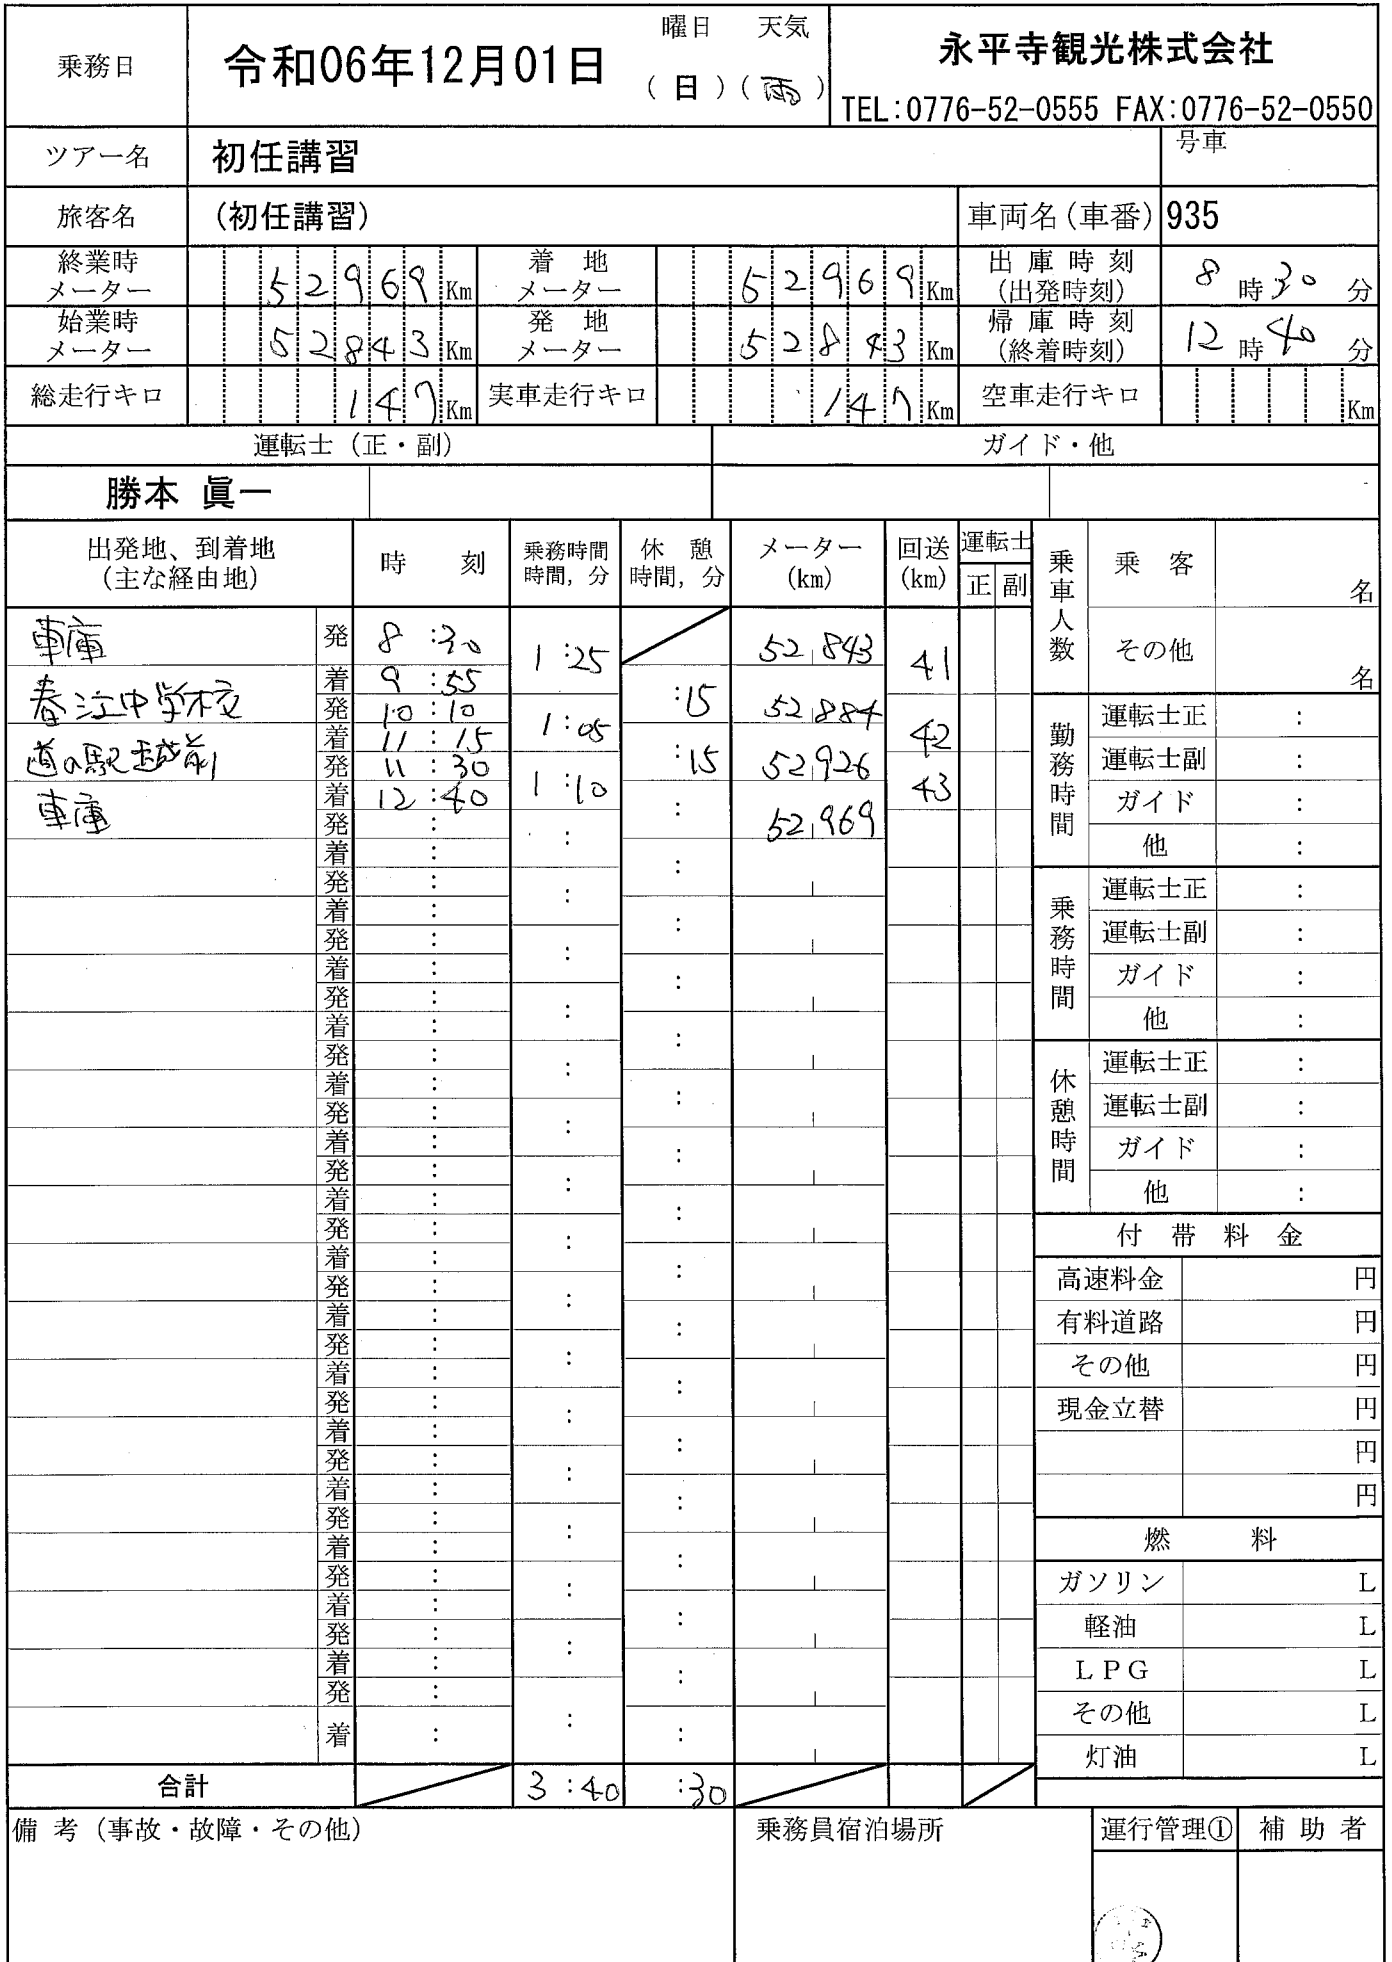 乗務日 令和06年12月01日 曜日 天気 (日)(雨) 永平寺観光株式会社
TEL:0776-52-0555 FAX:0776-52-0550
ツアー名 初任講習 号車
旅客名 (初任講習) 車両名(車番) 935
終業時メーター 52969 Km 着地メーター 52969 Km 出庫時刻(出発時刻) 8時30分
始業時メーター 52843 Km 発地メーター 52843 Km 帰庫時刻(終着時刻) 12時40分
総走行キロ 147 Km 実車走行キロ 147 Km 空車走行キロ Km
運転士(正・副) ガイド・他
勝本 眞一
出発地、到着地(主な経由地) 時刻 乗務時間 時間,分 休憩 時間,分 メーター(km) 回送(km) 運転士 正 副
車庫 発 8:30 1:25 52,843 41
着 9:55
春江中学校 発 10:10 :15 1:05 52,884 42
着 11:15
道の駅越前 発 11:30 :15 1:10 52,926 43
着 12:40
車庫 発 : : : 52,969
着 :
発 : : :
着 :
発 : : :
着 :
発 : : :
着 :
発 : : :
着 :
発 : : :
着 :
発 : : :
着 :
発 : : :
着 :
発 : : :
着 :
発 : : :
着 :
発 : : :
着 :
発 : : :
着 :
発 : : :
着 :
発 : : :
着 :
発 : : :
着 :
発 : : :
着 : :
合計 3:40 :30
乗車人数 乗客 名
その他 名
勤務時間 運転士正 :
運転士副 :
ガイド :
他 :
乗務時間 運転士正 :
運転士副 :
ガイド :
他 :
休憩時間 運転士正 :
運転士副 :
ガイド :
他 :
付帯料金
高速料金 円
有料道路 円
その他 円
現金立替 円
円
円
燃料
ガソリン L
軽油 L
LPG L
その他 L
灯油 L
備考(事故・故障・その他) 乗務員宿泊場所 運行管理① 補助者